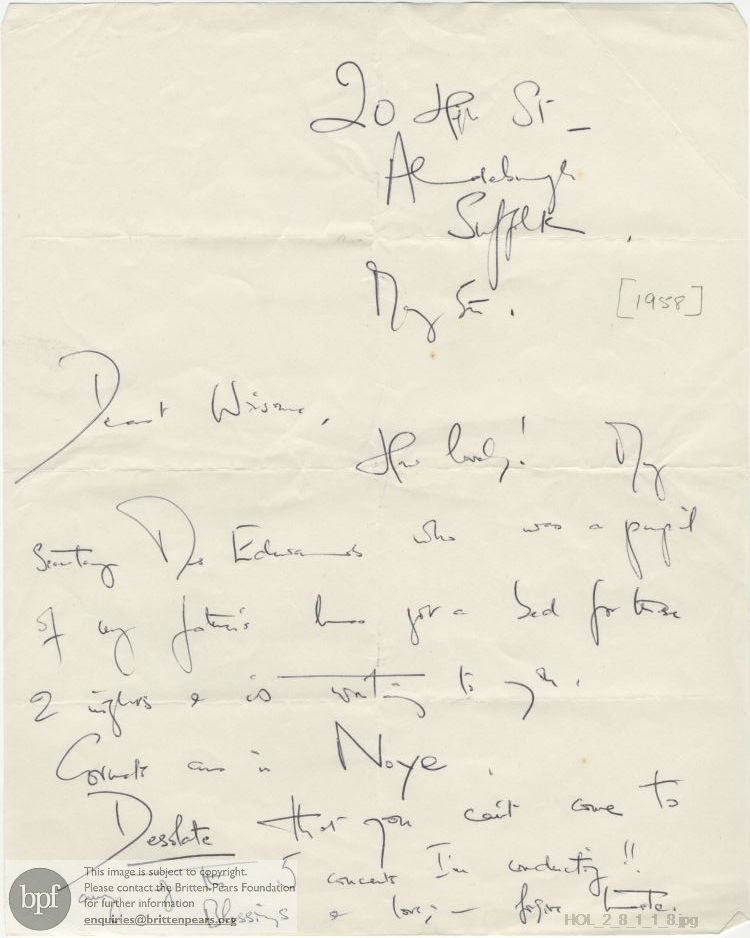 20 High St.
Aldeburgh
Suffolk.
May 5th.
[1958]
Dearest
How lovely! My
Secretary Mrs Edwards who was a pupil
of my father's has got a bed for those
2 nights & is writing to you.
Cornets are in Noye
Desolate that you can't come to
any of the 5 concerts I'm conducting!!
Blessings & love; — forgive haste.
bpf
This image is subject to copyright.
Please contact the Britten-Pears Foundation
for further information
enquiries@brittenpears.org
HOL_2_8_1_1_8.jpg